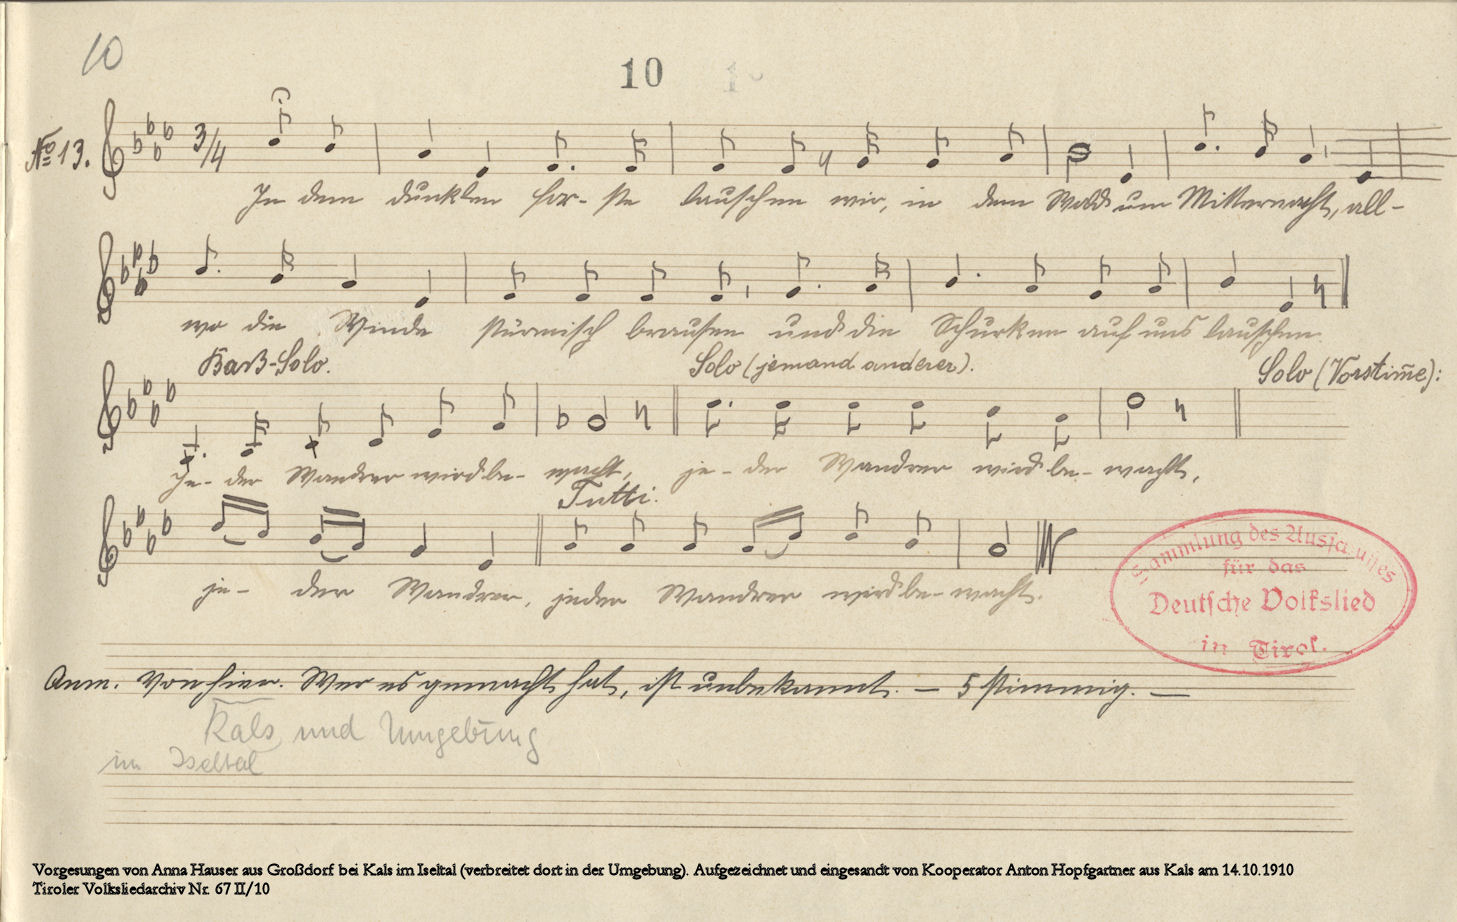 10
10
No 13. 3/4
In dem dunklen Forste lauschen wir, in dem Wald um Mitternacht, all-
wo die Winde stürmisch brausen und die Schurken auf uns lauschen.
Baß-Solo. Solo (jemand anderer). Solo (Vorstim̅e):
Je- der Wandrer wird be- wacht, je- der Wandrer wird be- wacht,
Tutti.
je- der Wandrer, jeder Wandrer wird be- wacht.
Sammlung des Ausschusses
für das
Deutsche Volkslied
in Tirol.
Anm. Von hier. Wer es gemacht hat, ist unbekannt. — 5 stimmig. —
Kals und Umgebung
im Iseltal
Vorgesungen von Anna Hauser aus Großdorf bei Kals im Iseltal (verbreitet dort in der Umgebung). Aufgezeichnet und eingesandt von Kooperator Anton Hopfgartner aus Kals am 14.10.1910
Tiroler Volksliedarchiv Nr. 67 II/10